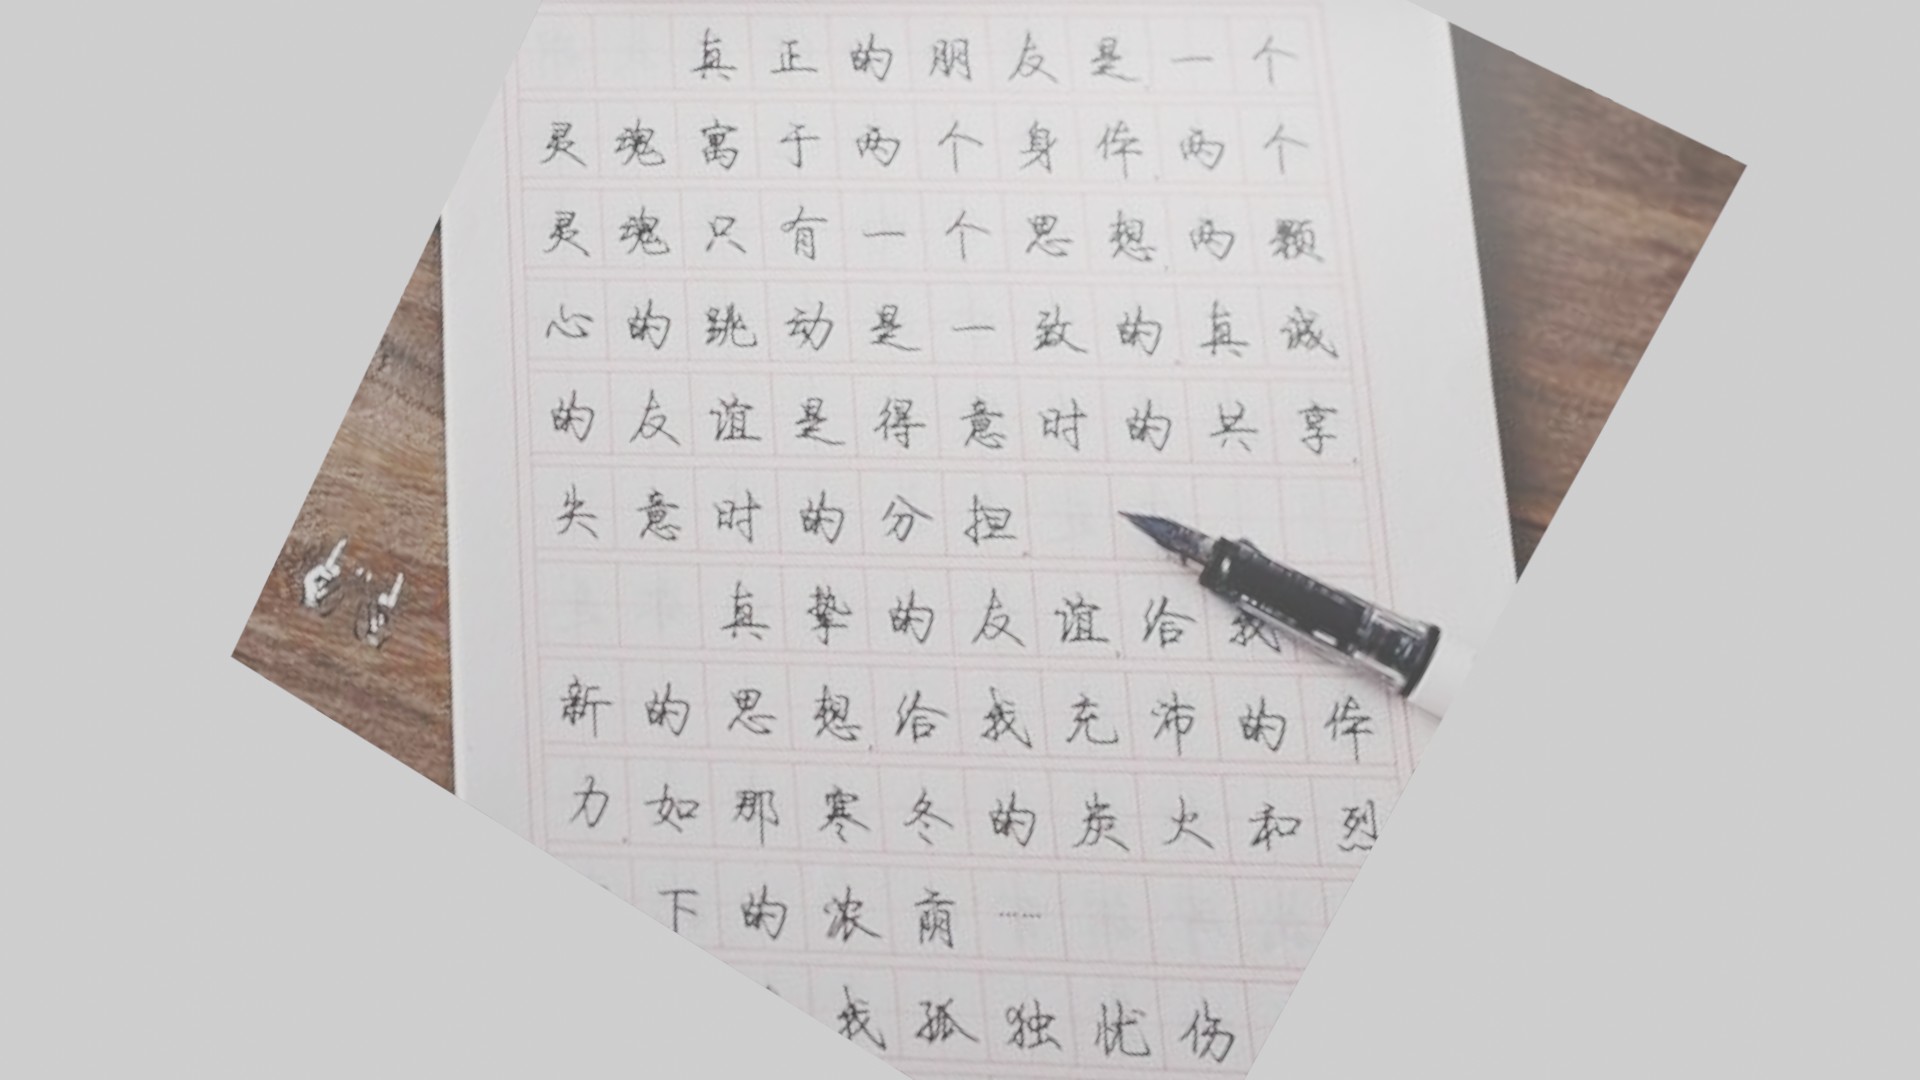 真正的朋友是一个
灵魂寓于两个身体,两个
灵魂只有一个思想,两颗
心的跳动是一致的,真诚
的友谊是得意时的共享,
失意时的分担.
真挚的友谊,给我
新的思想,给我充沛的体
力,如那寒冬的炭火和烈
下的浓荫……
我孤独忧伤